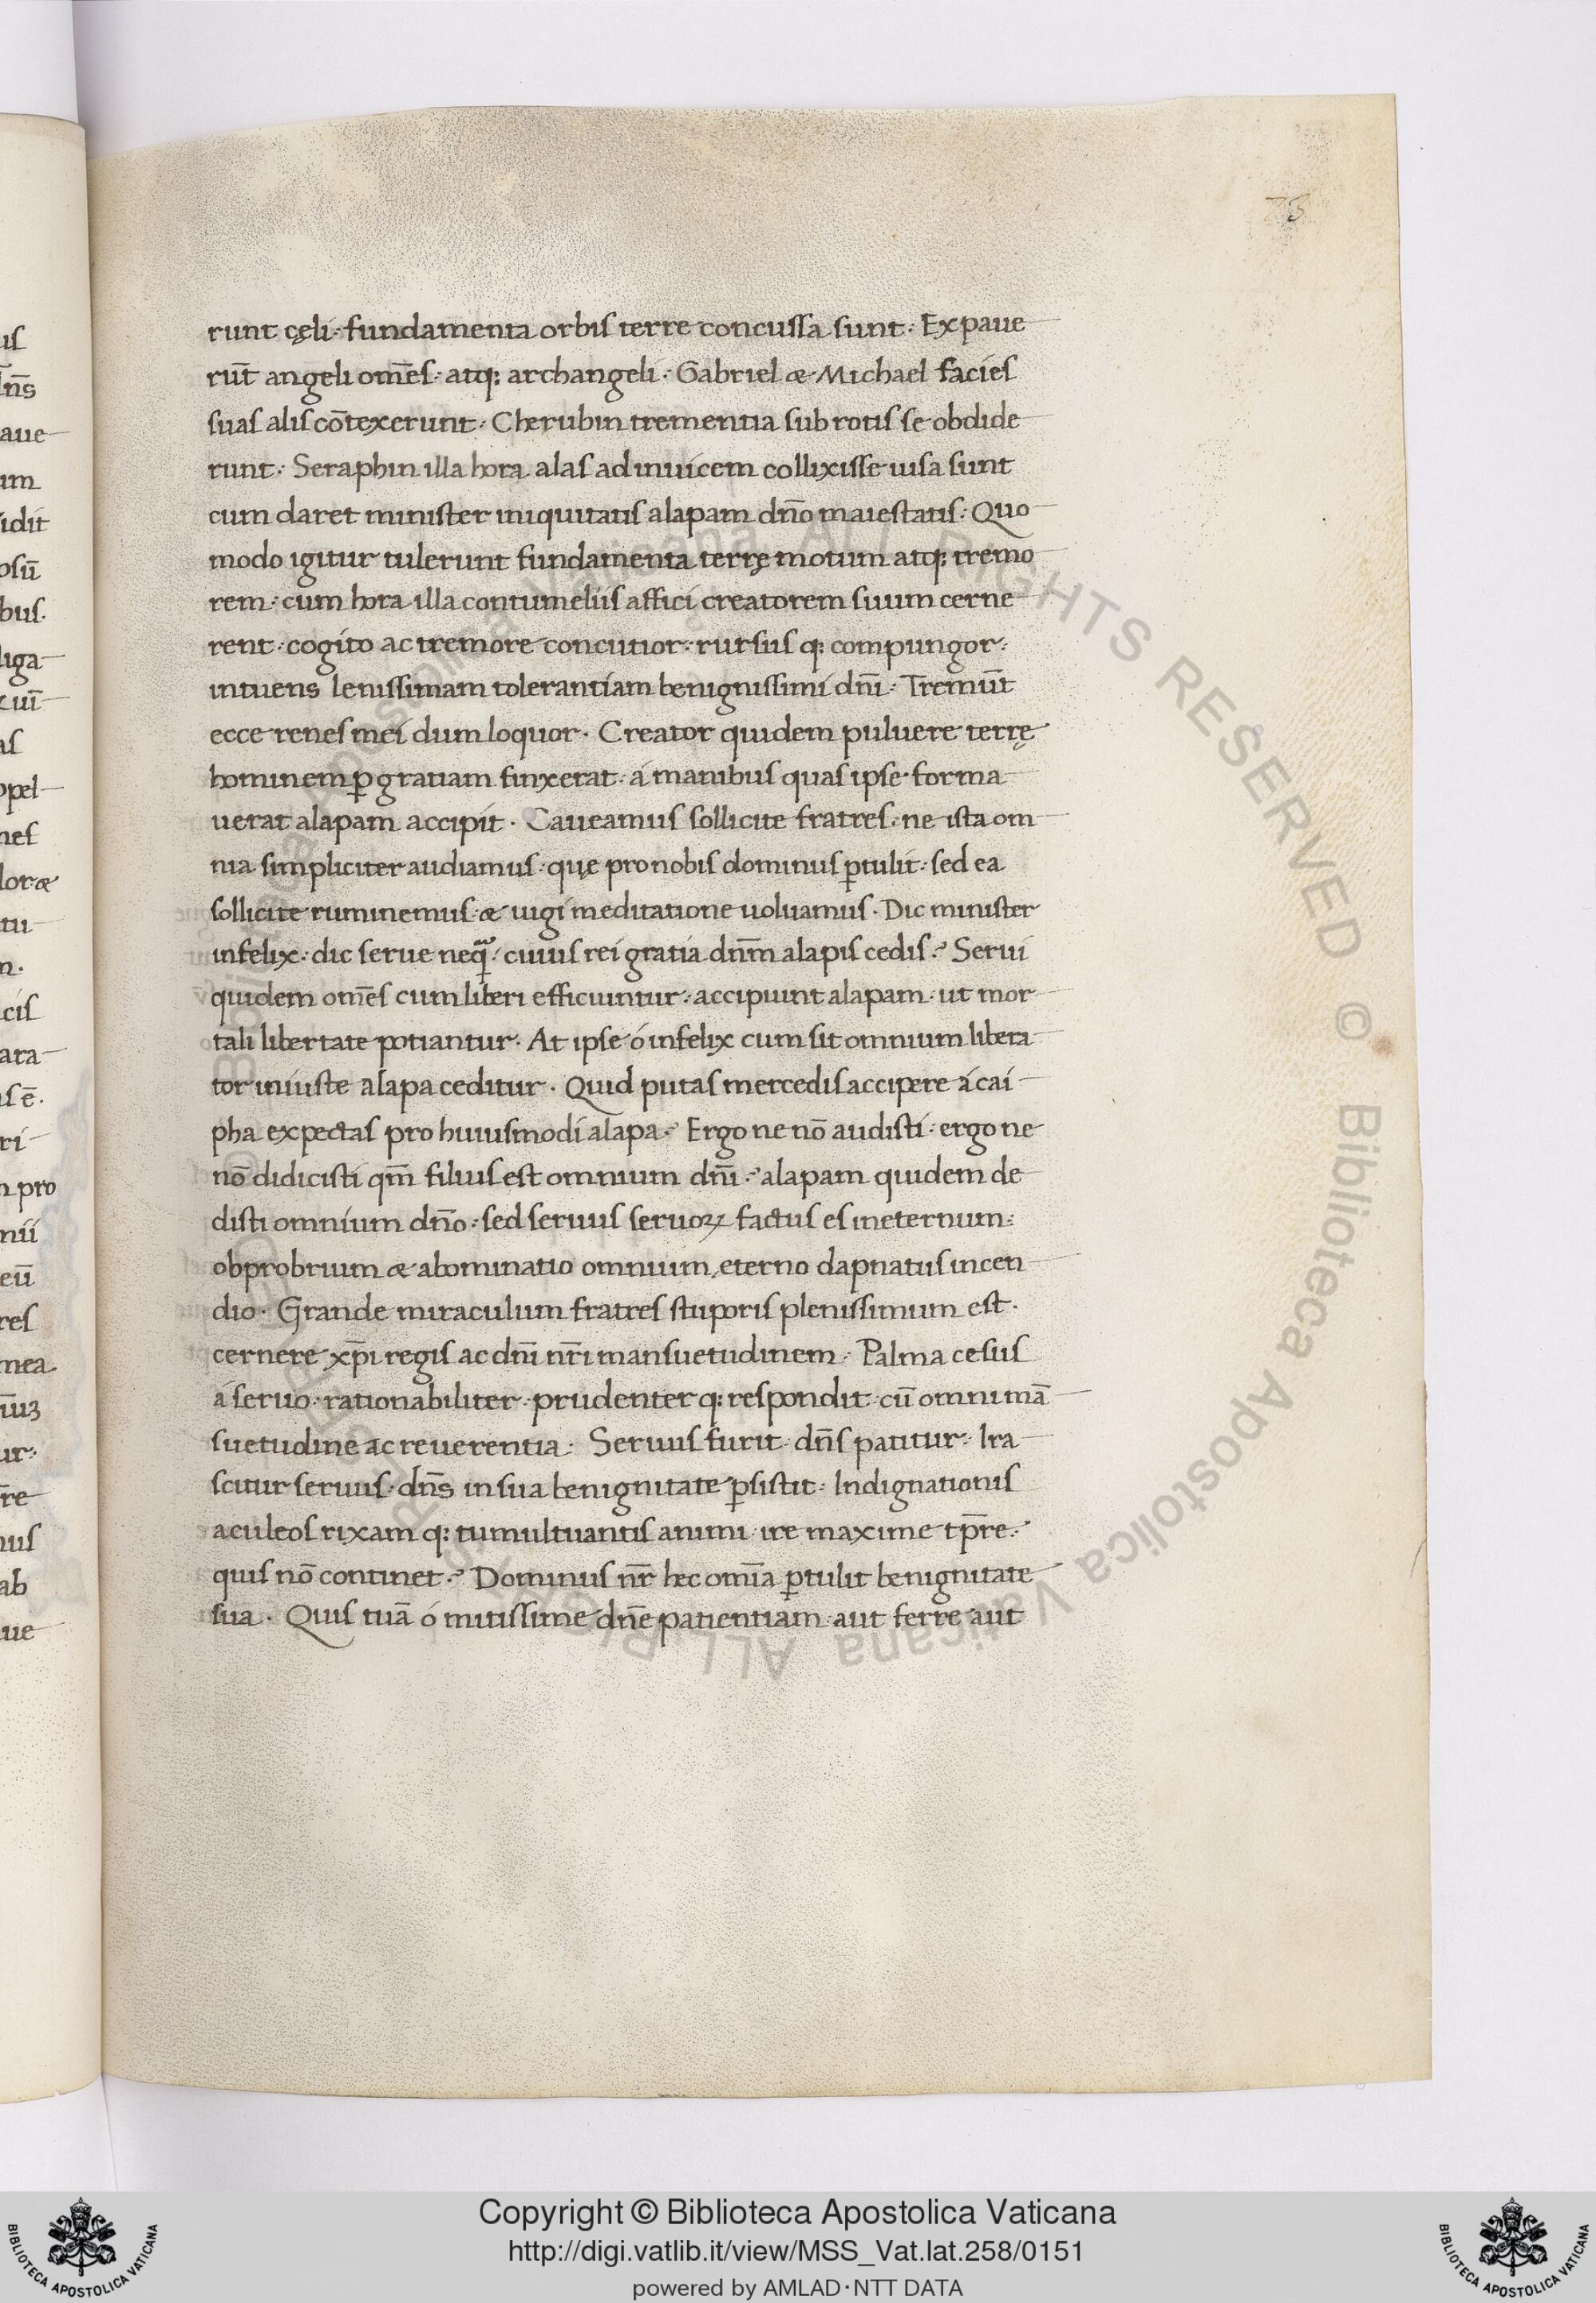 73
runt cęli · fundamenta orbis terre concussa sunt · Expaue
rūt angeli om̄es · atq; archangeli · Gabriel & Michael facies
suas alis cōtexerunt · Cherubin trementia sub rotis se obdide
runt · Seraphin illa hora alas adinuicem collixisse uisa sunt
cum daret minister iniquitatis alapam dn̄o maiestatis · Quo
modo igitur tulerunt fundamenta terrę motum atq; tremo
rem · cum hora illa contumeliis affici creatorem suum cerne
rent · cogito ac tremore concutior · rursus q; compungor ·
intuens lenissimam tolerantiam benignissimi dn̄i · Tremūt
ecce renes mei dum loquor · Creator quidem puluere terrę
hominem ꝑ gratiam finxerat · á manibus quas ipse forma
uerat alapam accipit · Caueamus sollicite fratres · ne ista om
nia simpliciter audiamus · quę pro nobis dominus ꝑtulit · sed ea
sollicite ruminemus · & uigi meditatione uoluamus · Dic minister
infelix · dic serue neq̃ · cuius rei gratia dn̄m alapis cedis ? Serui
quidem om̄es cum liberi efficiuntur · accipiunt alapam · ut mor
tali libertate potiantur · At ipse ó infelix cum sit omnium libera
tor iniuste alapa ceditur · Quid putas mercedis accipere á cai
pha expectas pro huiusmodi alapa ? Ergo ne nō audisti · ergo ne
nō didicisti qm̄ filius est omnium dn̄i ? alapam quidem de
disti omnium dn̄o · sed seruus seruoꝝ factus es in eternum ·
obprobrium & abominatio omnium, eterno dapnatus incen
dio · Grande miraculum fratres stuporis plenissimum est ·
cernere xp̄i regis ac dn̄i nr̄i mansuetudinem · Palma cesus
á seruo · rationabiliter · prudenter q; respondit · cū omni mā
suetudine ac reuerentia · Seruus furit · dn̄s patitur · Ira
scitur seruus · dn̄s in sua benignitate ꝑsistit · Indignationis
aculeos rixam q; tumultuantis animi · ire maxime tp̄re ·
quis nō continet ? Dominus nr̄ hec om̄ia ꝑtulit benignitate
sua · Quis tuā ó mitissime dn̄e patientiam · aut ferre aut
Copyright © Biblioteca Apostolica Vaticana
http://digi.vatlib.it/view/MSS_Vat.lat.258/0151
powered by AMLAD·NTT DATA